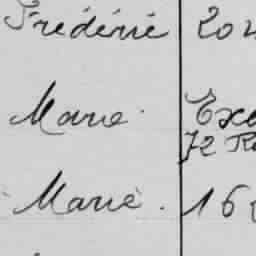 Frédéric 20
Marie Exe
72 R
Marie. 16